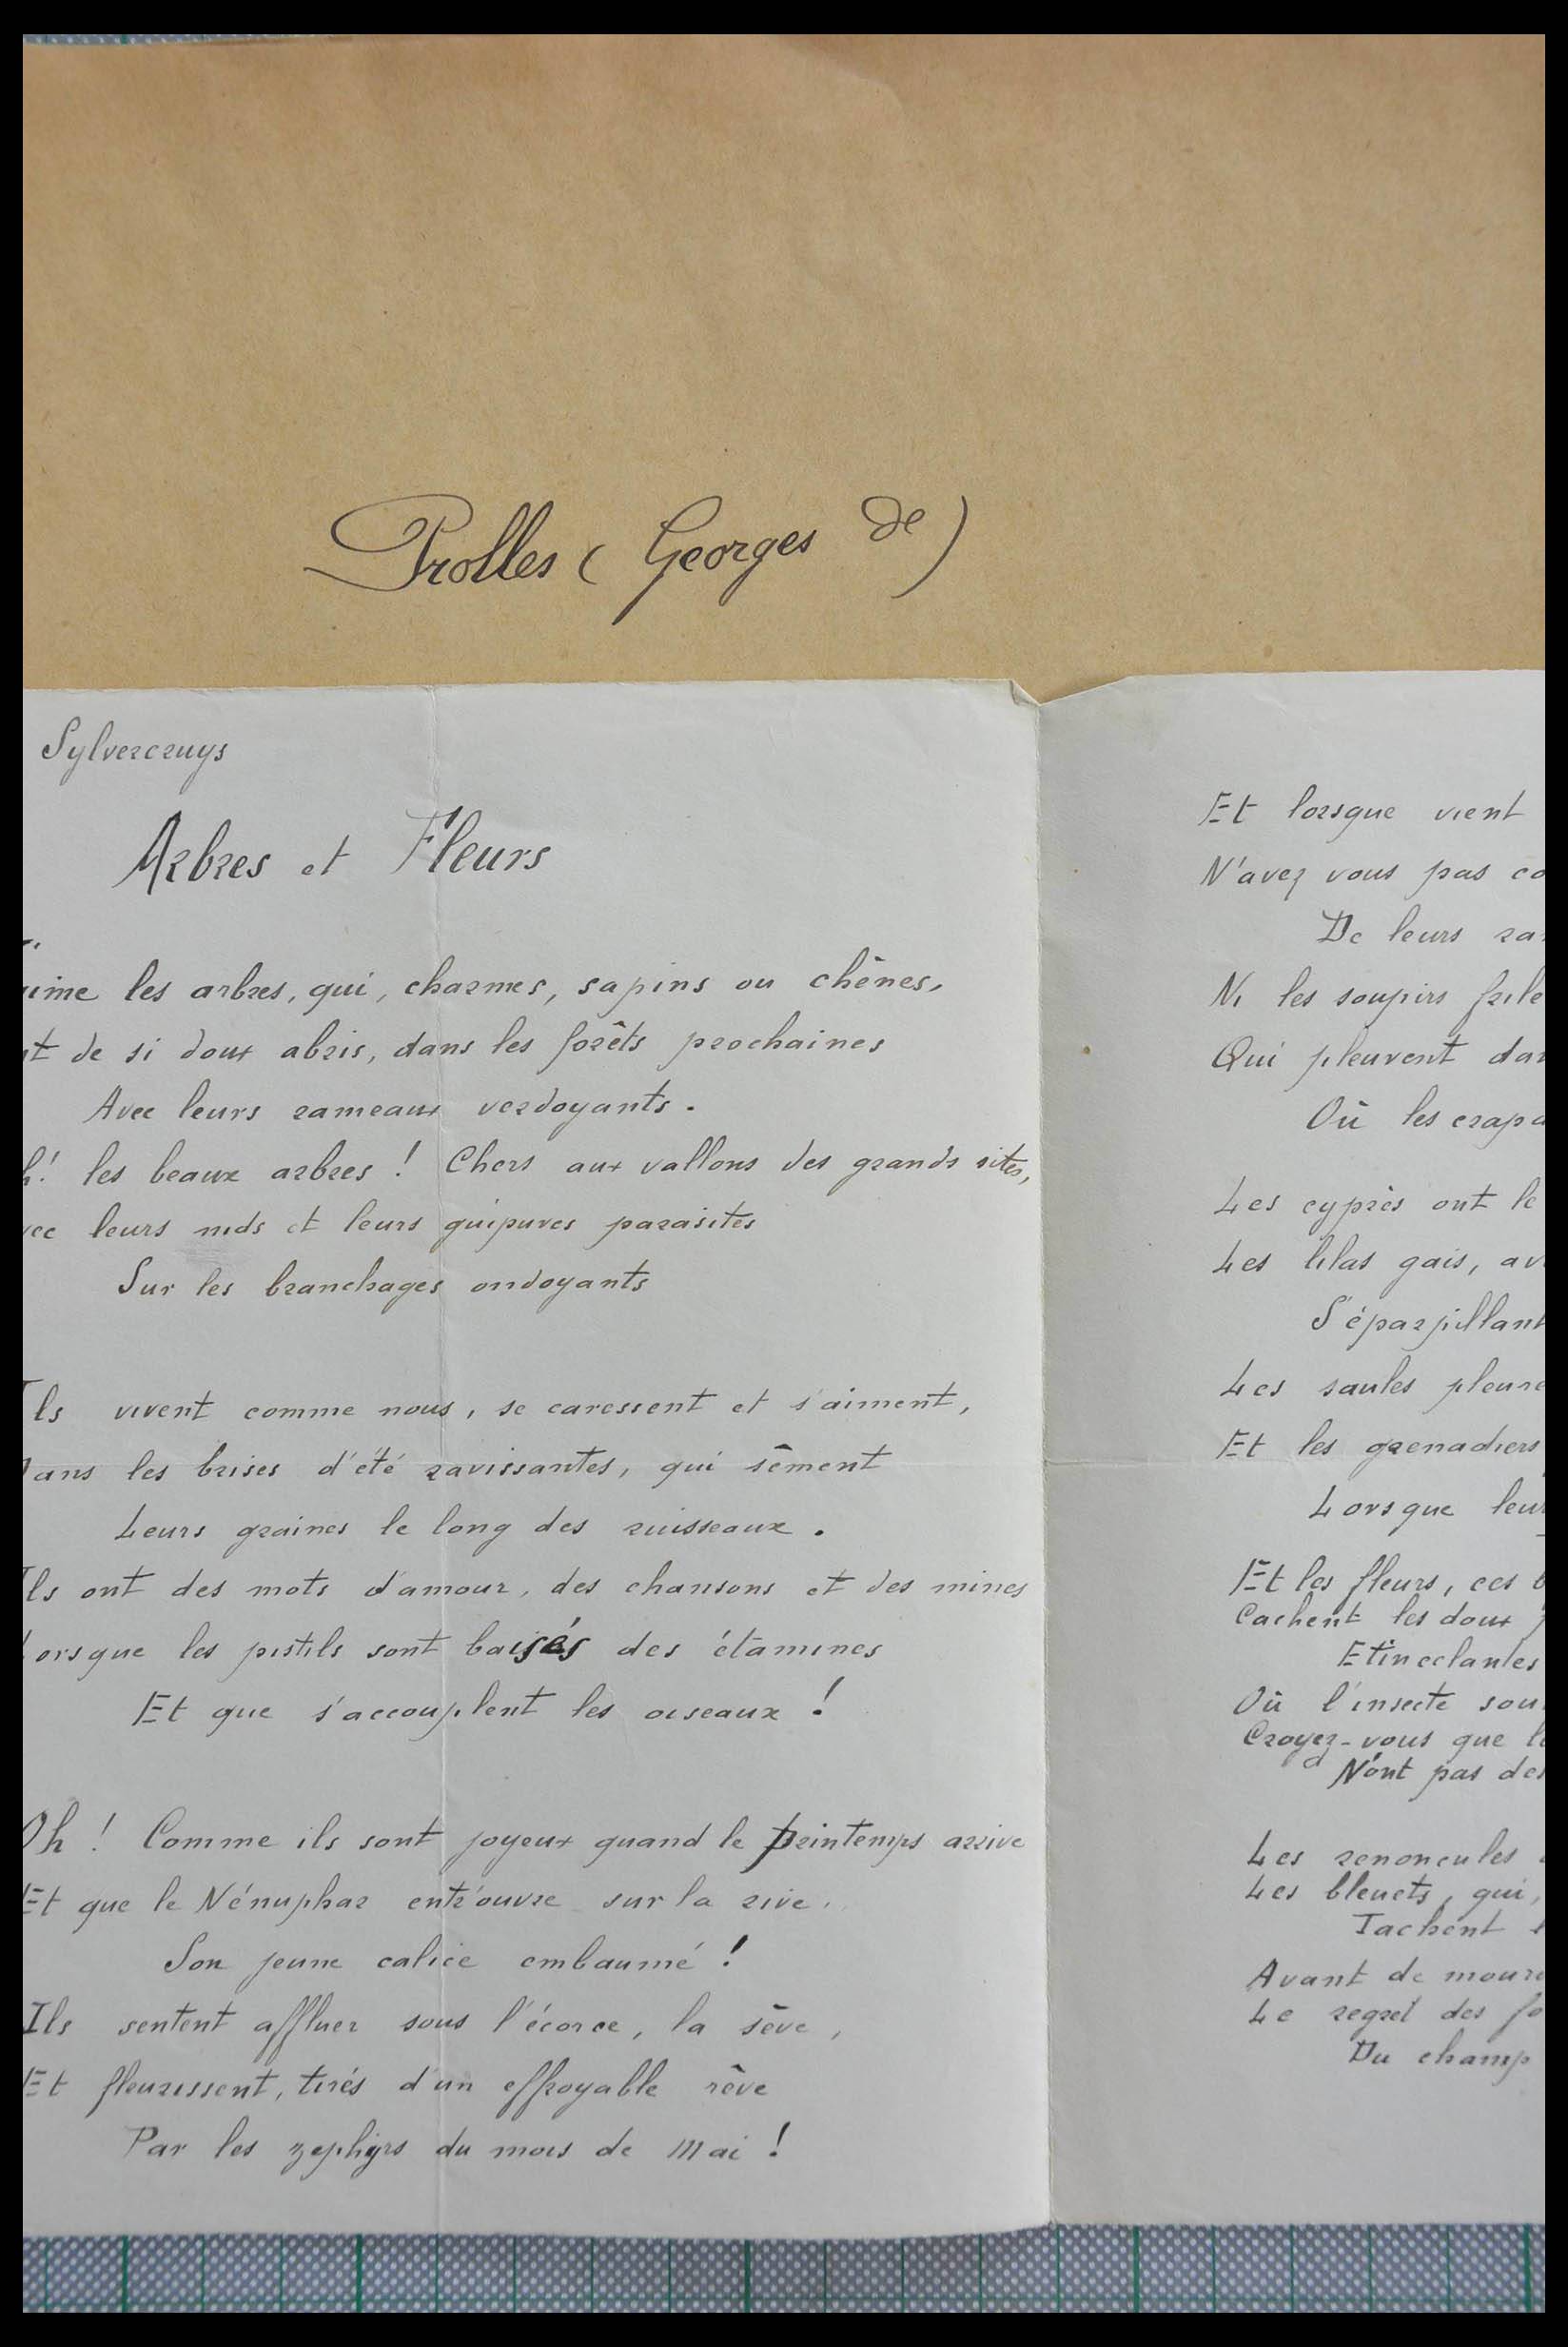 Prolles ( Georges de )
Sylvercruys
Arbres et Fleurs
les arbres, qui, charmes, sapins ou chênes,
de si doux abris, dans les forêts prochaines
Avec leurs rameaux verdoyants.
les beaux arbres ! Chers aux vallons des grands sites,
leurs nids et leurs guipures parasites
Sur les branchages ondoyants
Ils vivent comme nous, se caressent et s'aiment,
Dans les brises d'été ravissantes, qui sèment
Leurs graines le long des ruisseaux.
Ils ont des mots d'amour, des chansons et des mines
Lorsque les pistils sont baisés des étamines
Et que s'accouplent les oiseaux !
Oh ! Comme ils sont joyeux quand le printemps arrive
Et que le Nénuphar entr'ouvre sur la rive.
Son jeune calice embaumé !
Ils sentent affluer sous l'écorce, la sève,
Et fleurissent, tirés d'un effroyable rêve
Par les zephyrs du mois de Mai !
Et lorsque vient
N'avez vous pas co
De leurs ra
Ni les soupirs frile
Qui pleuvent dan
Où les crapa
Les cyprès ont le
Les lilas gais, av
S'éparpillant
Les saules pleure
Et les grenadiers
Lorsque leur
Et les fleurs, ces
Cachent les doux
Etincelantes
Où l'insecte sou
Croyez-vous que l
N'ont pas des
Les renoncules
Les bleuets, qui,
Tachent
Avant de mouri
Le regret des fo
Du champ